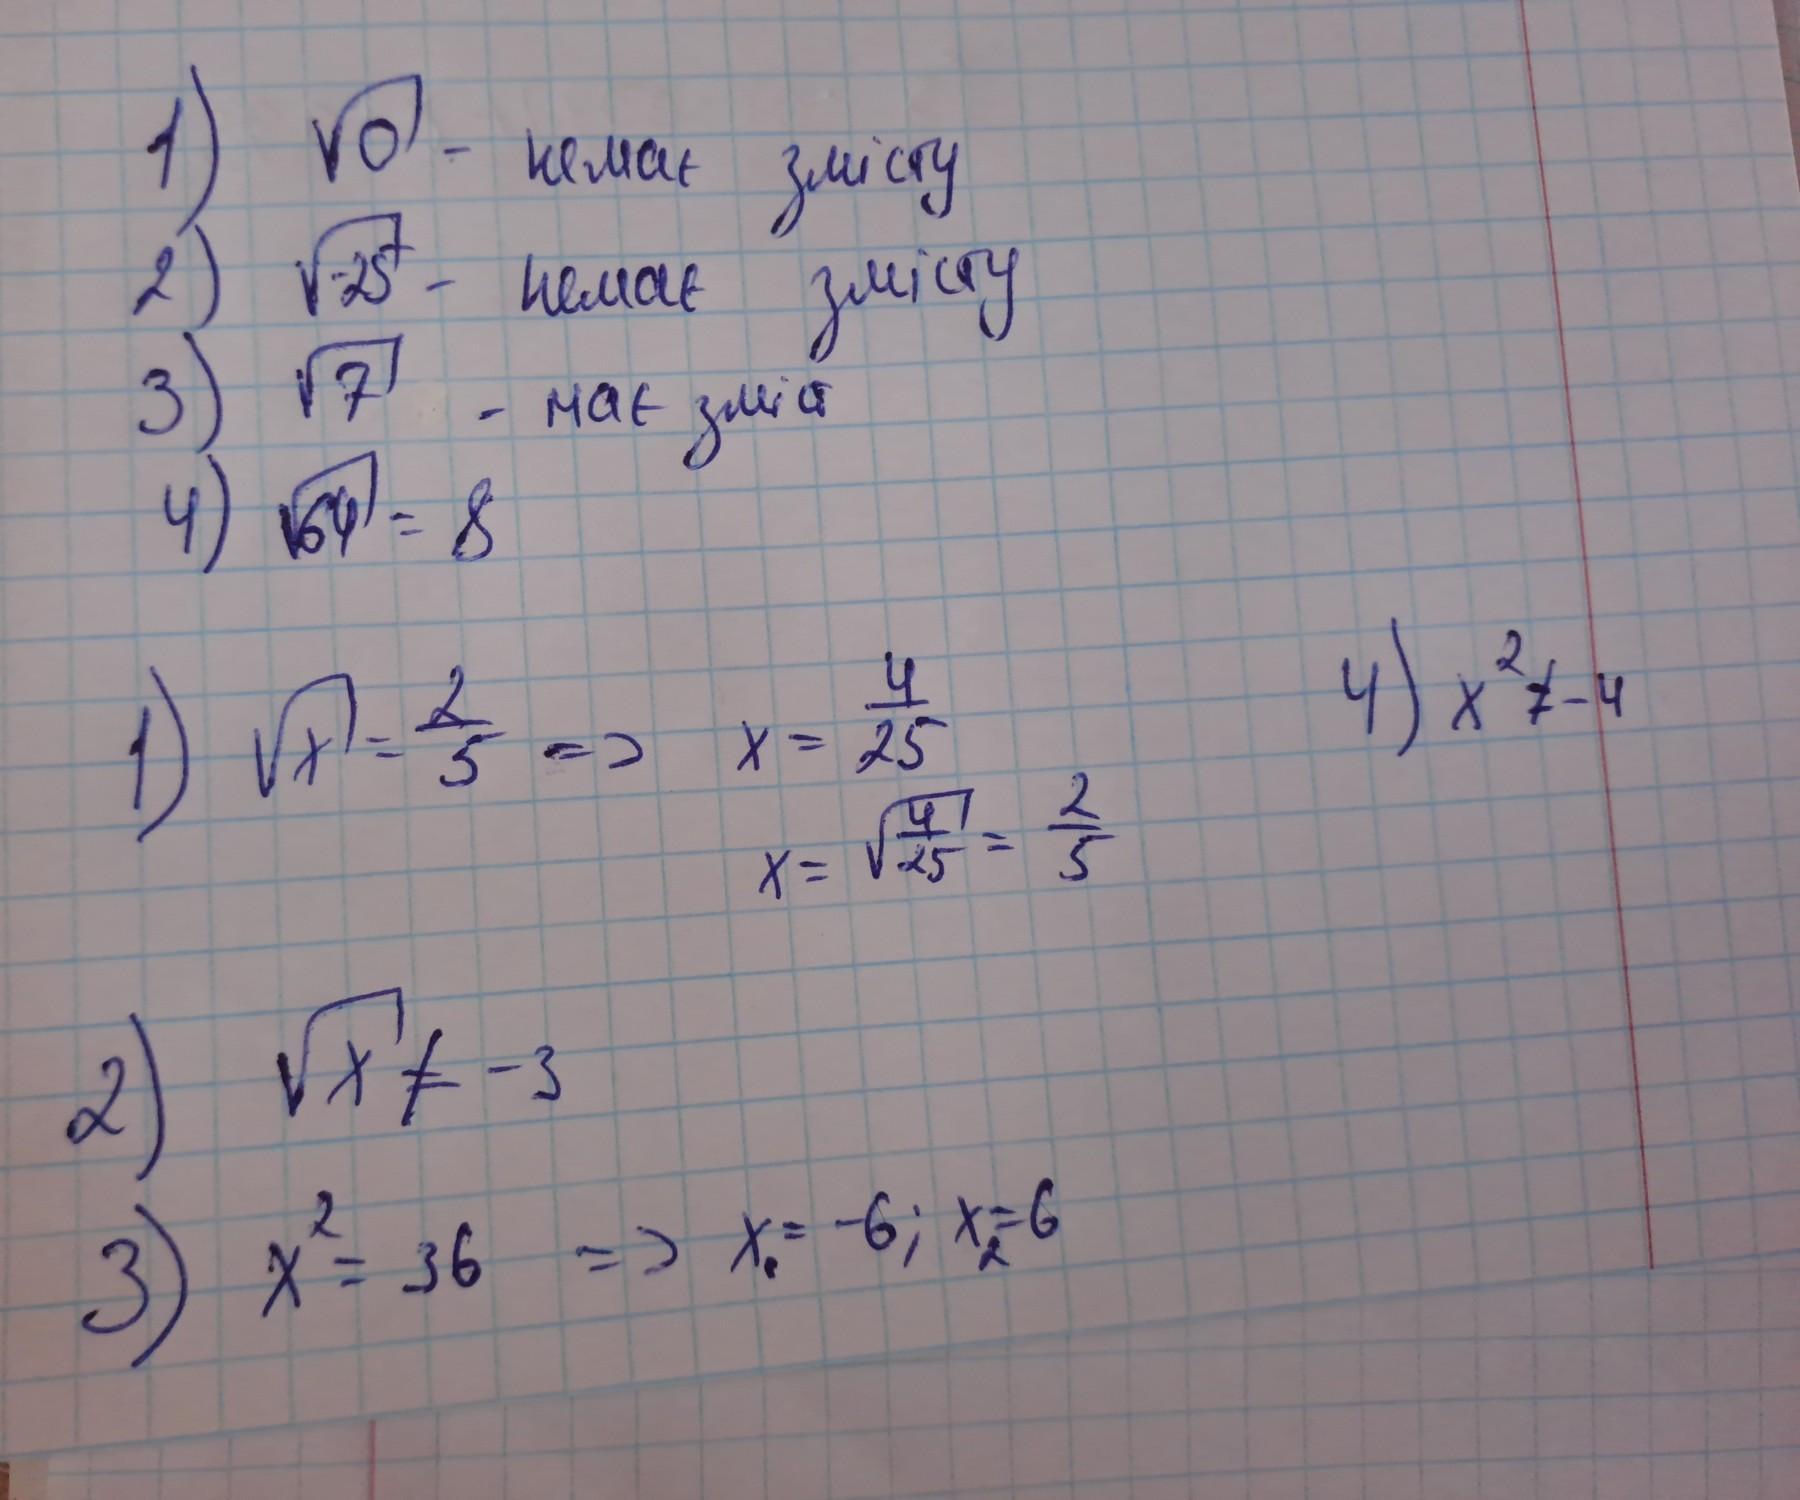 1) √0 - немає змісту
2) √-25 - немає змісту
3) √7 - має зміст
4) √64 = 8
1) √x = 2/5 => x = 4/25
x = √4/25 = 2/5
4) x² ≠ -4
2) √x ≠ -3
3) x² = 36 => x₁ = -6; x₂ = 6